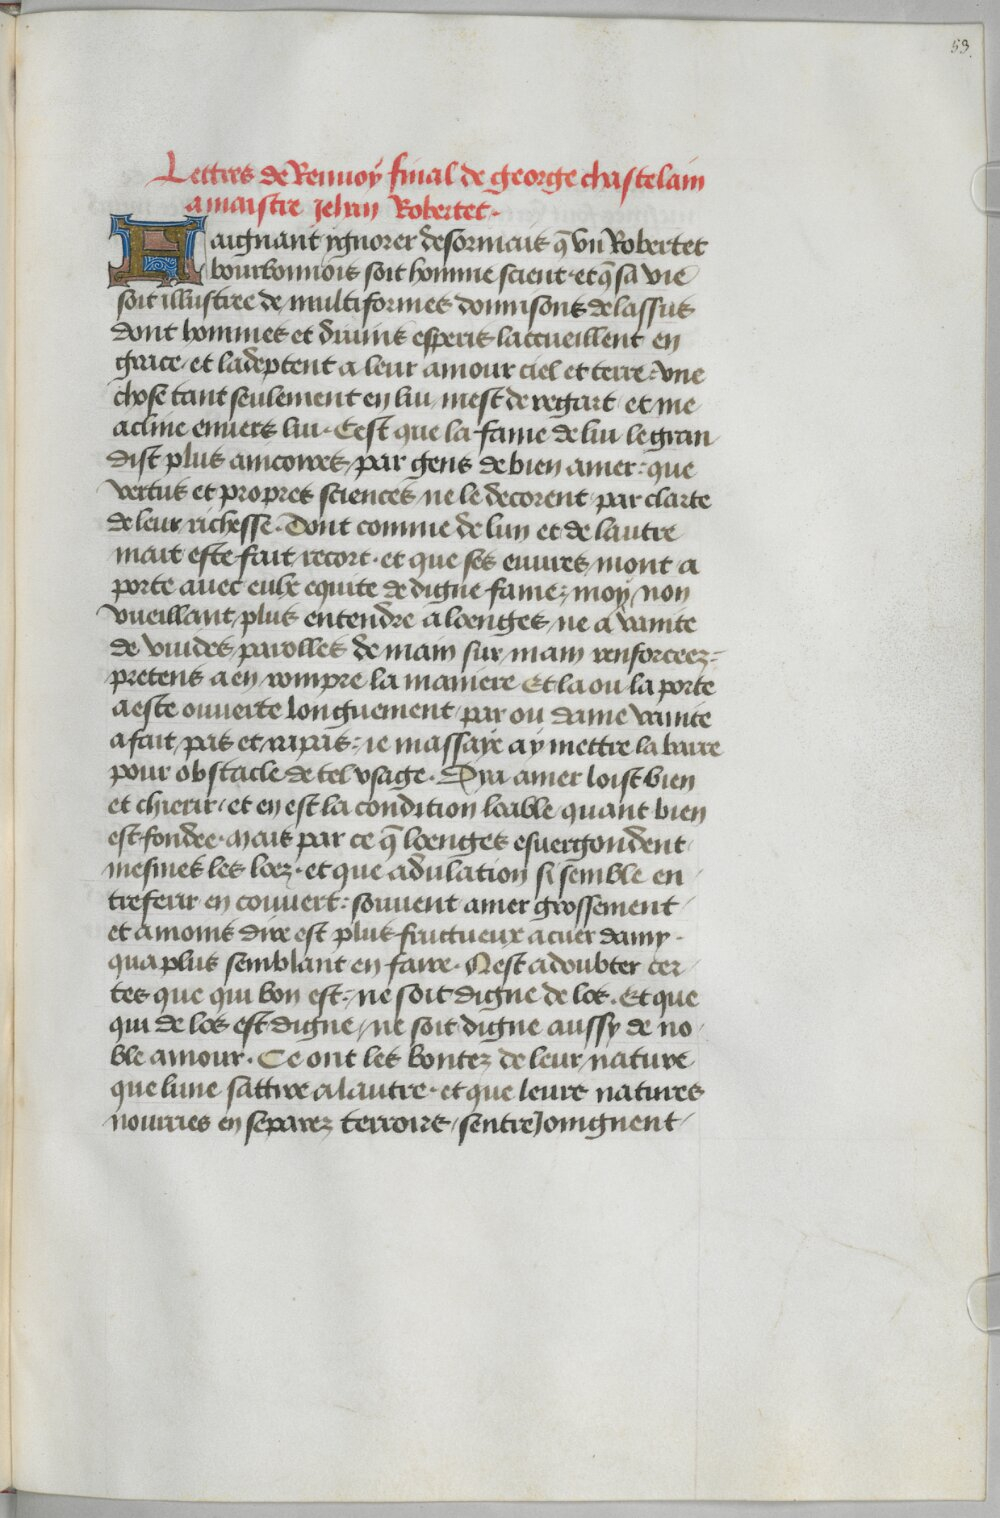 53.
Lettres de Renuoy final de george chastelain
a maistre Jehan Robertet.
Haignant ygnorer desormais q̄ vn Robertet
bourbonnois soit homme scient. et q̄ sa vie
soit illustree de multiformes donnisons de lassus
dont hommes et diuins esperis laccueillent en
grace. et ladeptent a leur amour ciel et terre: vne
chose tant seulement en luy mest de regart et me
acline enuers luy. Cest que la fame de luy le gran
dist plus aincores par gens de bien amer: que
vertus et propres sciences ne le decorent par clarte
de leur richesse. Dont comme de lun et de lautre
mait este fait recort. et que ses euures mont a
porte auec eulx equite de digne fame, moy non
vueillant plus entendre a loenges ne a vanite
de vuides parolles de main sur main renforceez:
pretens a en rompre la maniere Et la ou la porte
a este ouuerte longuement par ou dame vanite
a fait pas et rapas: ie massaye a y mettre la barre
pour obstacle de tel vsage. Dya amer loist bien
et chierir. et en est la condition loable quant bien
est fondee. Mais par ce q̄ loenges esuergondent
mesmes les loez. et que adulation si semble en
treferir en couuert: souuent amer grossement
et a moins dire est plus fructueux a cuer damy.
qua plus semblant en faire. Nest a doubter cer
tes que qui bon est: ne soit digne de los. Et que
qui de los est digne, ne soit digne aussy de no
ble amour. Ce ont les bontez de leur nature
que lune sattire a lautre. et que leurs natures
nourries en separez terroirs sentrejoingnent